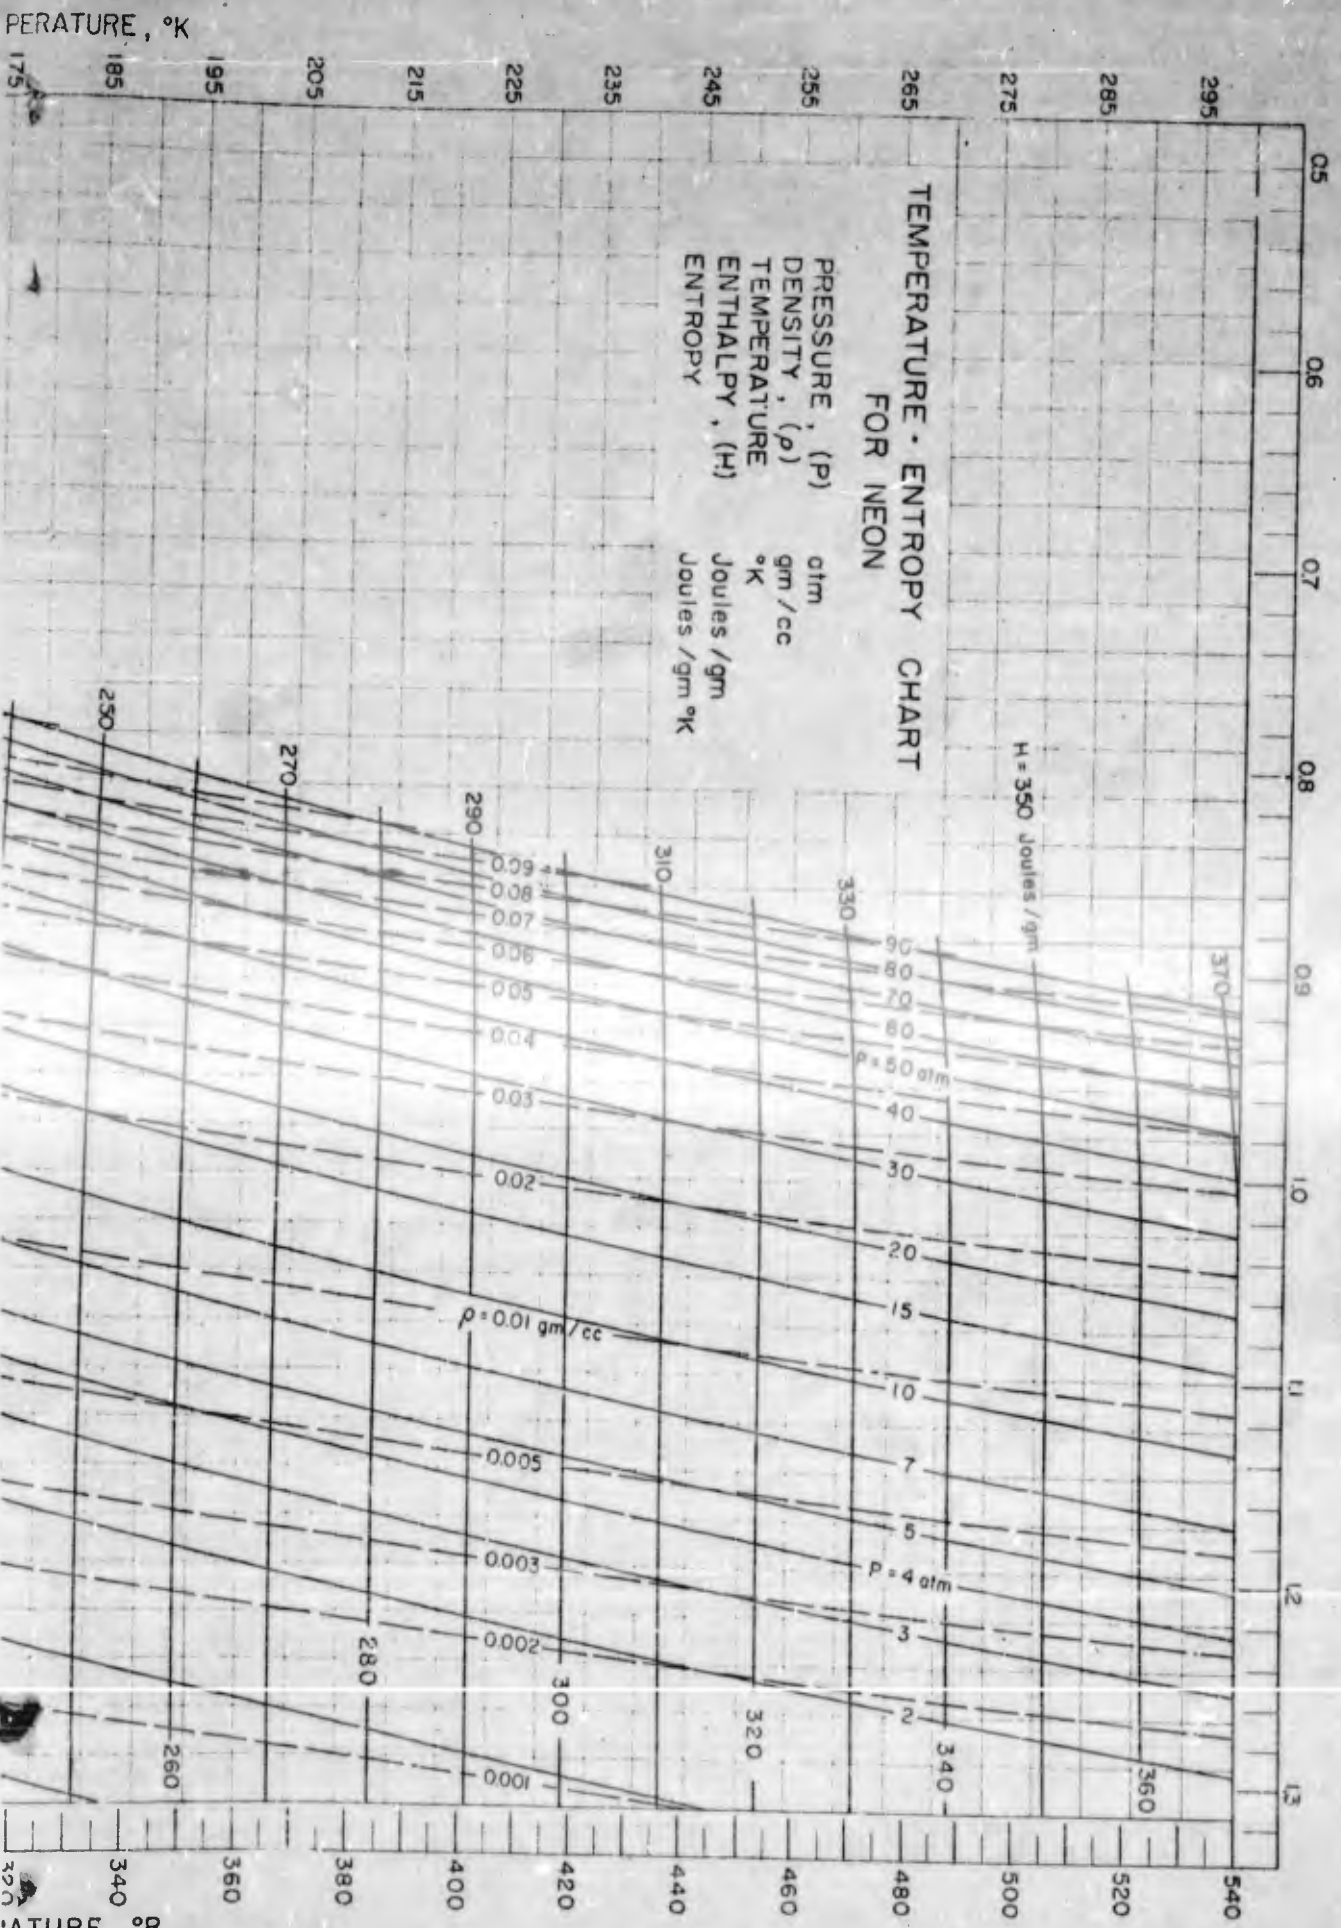 PERATURE, °K
175 185 195 205 215 225 235 245 255 265 275 285 295
0.5 0.6 0.7 0.8 0.9 1.0 1.1 1.2 1.3
TEMPERATURE - ENTROPY CHART
FOR NEON
PRESSURE, (P) atm
DENSITY, (ρ) gm/cc
TEMPERATURE °K
ENTHALPY, (H) Joules/gm
ENTROPY Joules/gm °K
H = 350 Joules/gm
250
270
290
310
330
370
0.09
0.08
0.07
0.06
0.05
0.04
0.03
0.02
ρ = 0.01 gm/cc
0.005
0.003
0.002
0.001
90
80
70
60
P = 50 atm
40
30
20
15
10
7
5
P = 4 atm
3
2
260
280
300
320
340
360
320 340 360 380 400 420 440 460 480 500 520 540
ATURE, °R